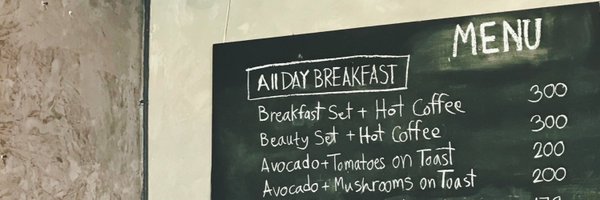 MENU
All DAY BREAKFAST
Breakfast Set + Hot Coffee 300
Beauty Set + Hot Coffee 300
Avocado + Tomatoes on Toast 200
Avocado + Mushrooms on Toast 200